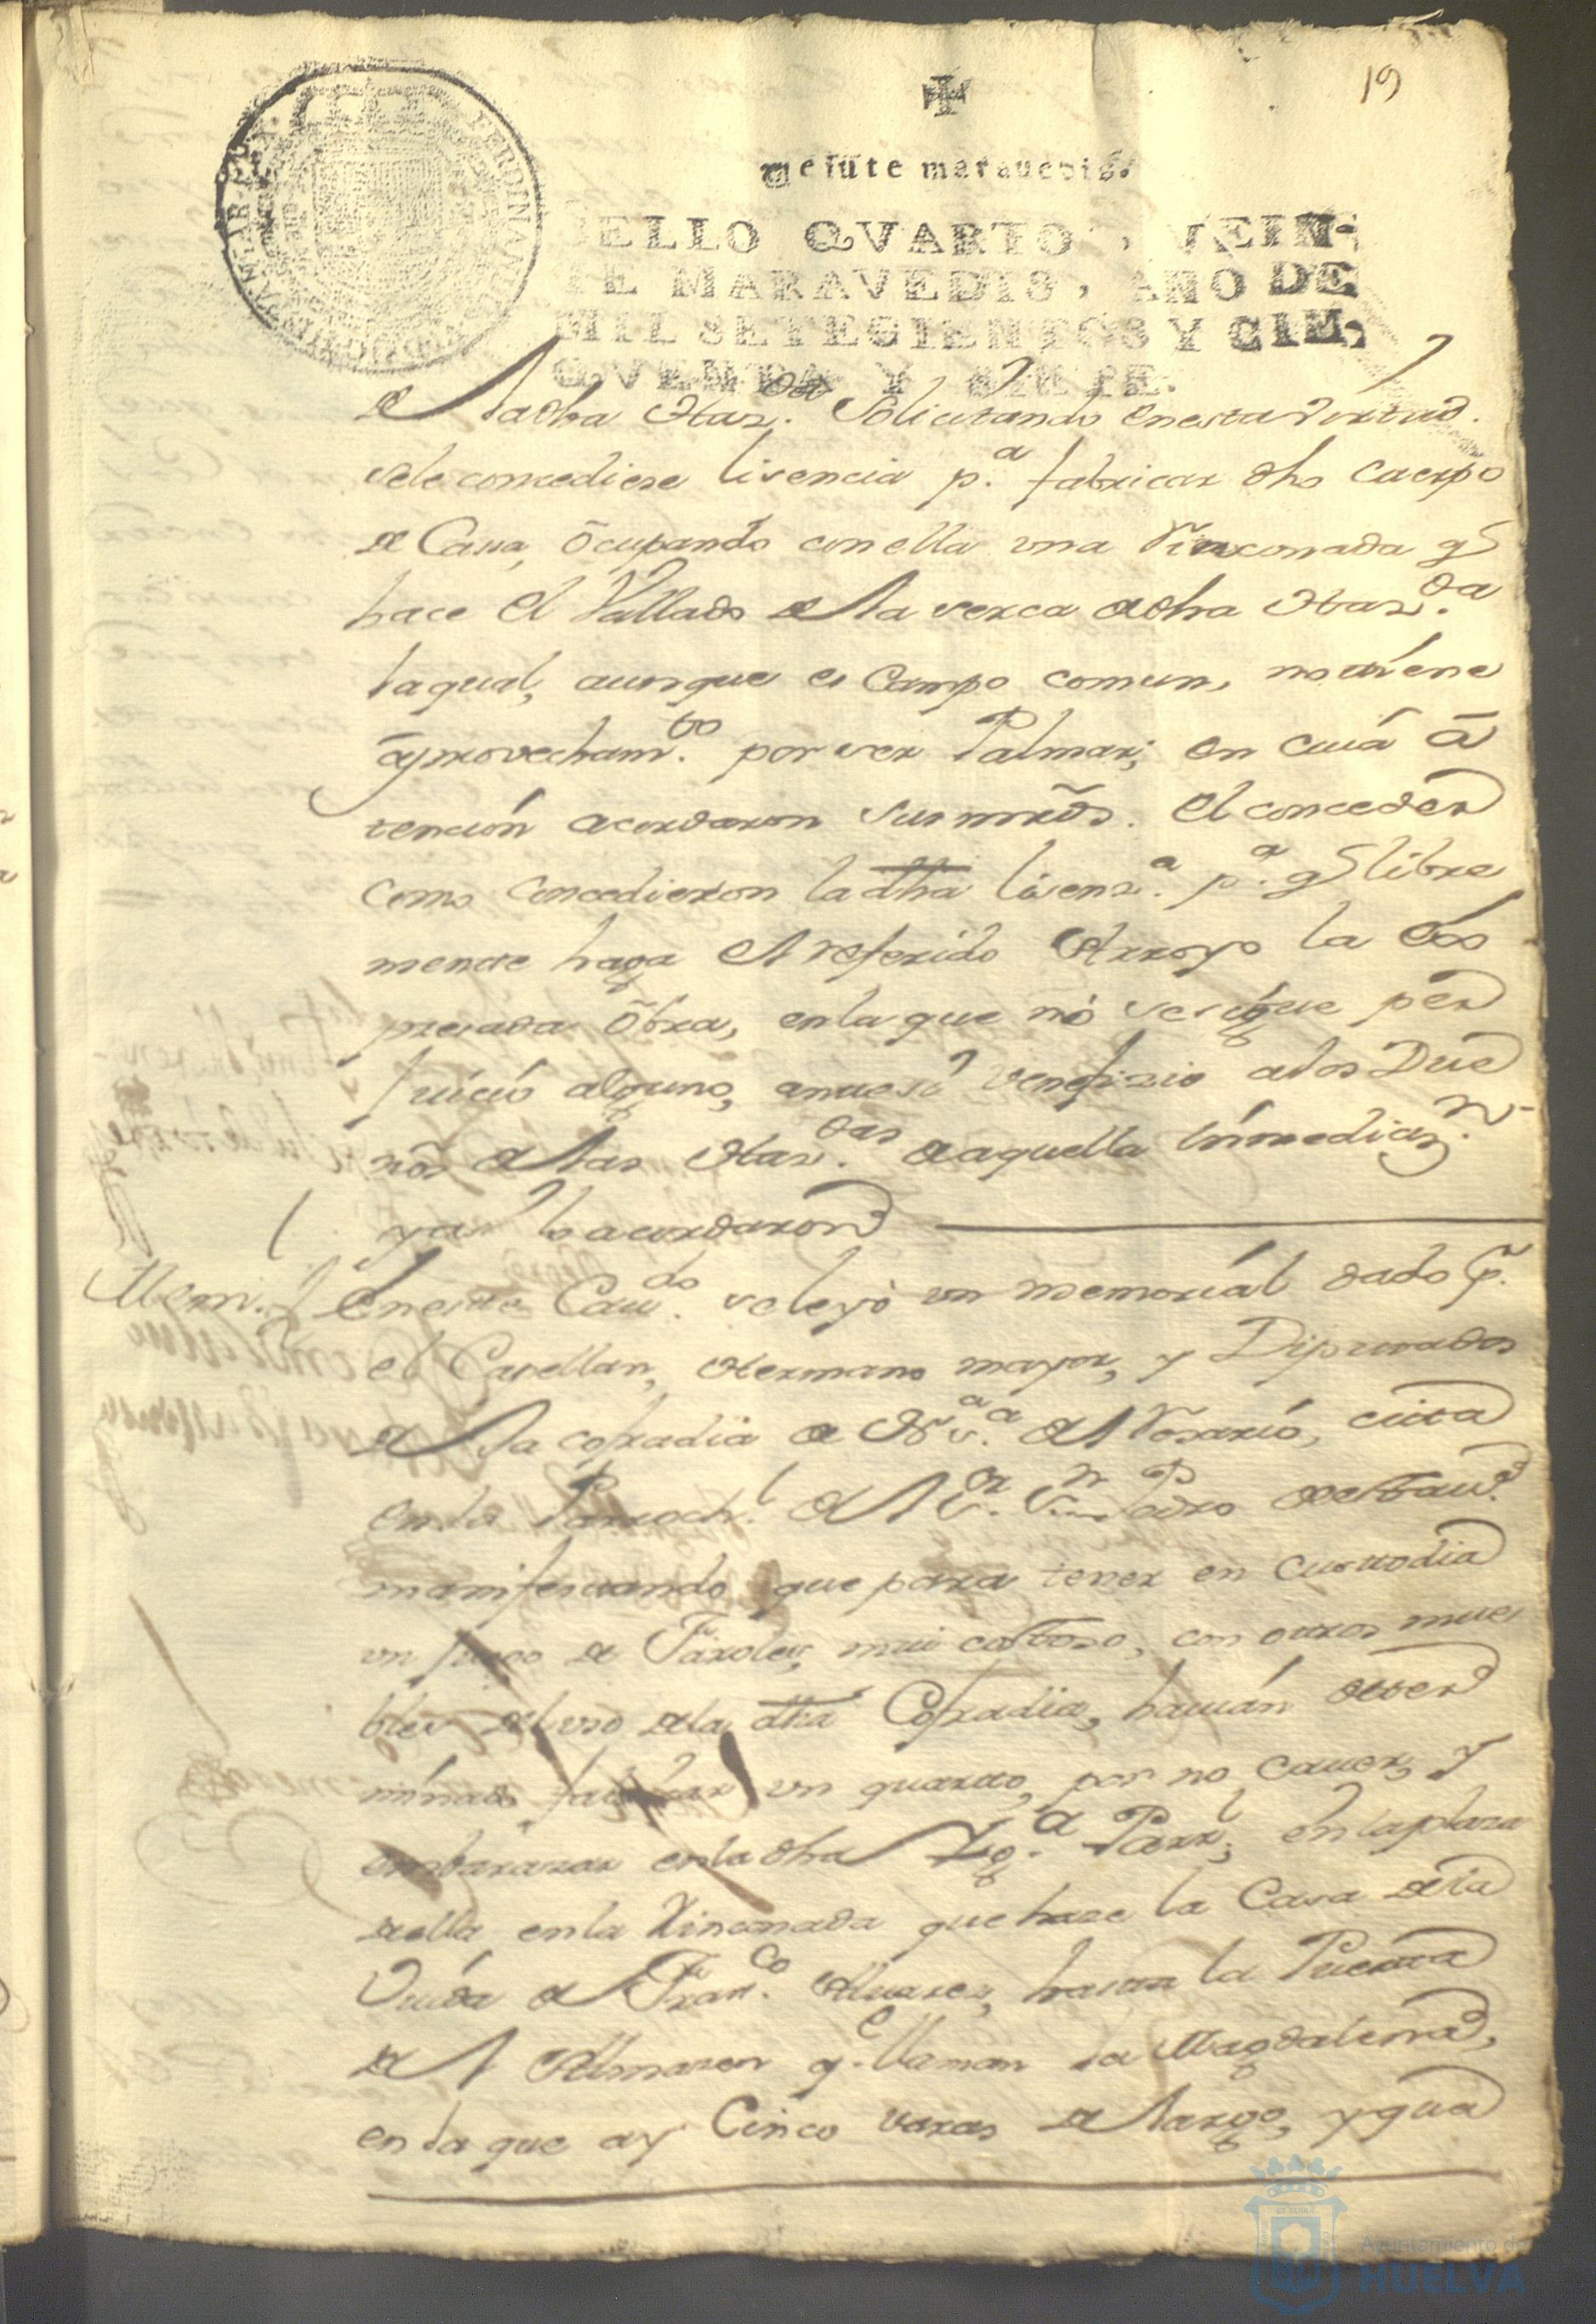 19
Veinte maravedis.
SELLO QVARTO, VEIN-
TE MARAVEDIS, AÑO DE
MIL SETECIENTOS Y CIN-
QVENTA Y SIETE.
de la dha Haz.da Solicitando en esta virtud
se le concediese lisencia p.a fabricar dho cuerpo
de Casa, ocupando con ella una Rinconada q̃
hace el Vallado de la serca de dha Haz.da
la qual, aunque es Campo comun, no tiene
aprovecham.to por ser Palmar; en cuia a
tencion acordaron sus mrds. el conceder
como concedieron la dha lisens.a p.a q̃ libre
mente haga el referido Arroyo la es
presada obra, en la que no se sigue per
juicio alguno, antes si venefizio a los Due
ños de las Haz.das de aquella inmediaz.n
y asi lo acordaron
Mem.l En este Cau.do se leyò un memorial dado p.r
el Capellan, Hermano mayor, y Diputados
de la cofradia de N.a S.a del Rosario, cita
en la Parroch.l del S.or S.n Pedro de esta v.a
manifestando que para tener en custodia
un juego de Faroles, mui costoso, con otros mue
bles del uso de la dha Cofradia, havian deter
minado fabricar un quarto, por no caver, y
embarazar en la dha Ygl.a Parr.l, en la plaza
de ella en la Rinconada que haze la Casa de la
Viuda de Fran.co Alvarez, hasta la Puerta
del Almazen q.e llaman la Magdalena,
en la que ay Cinco varas de largo, y qua
Ayuntamiento de
HUELVA